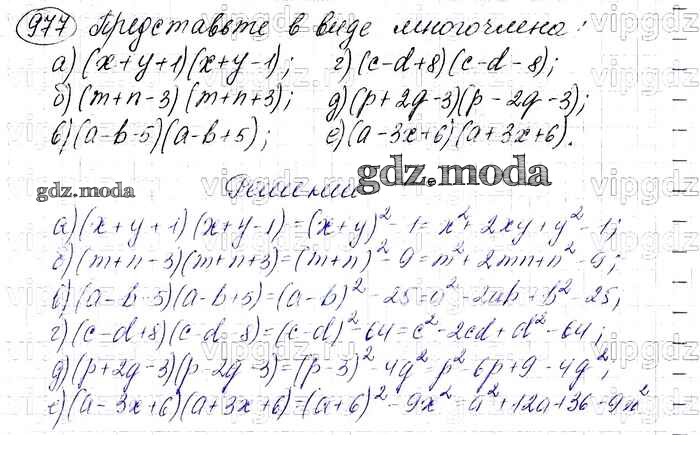 977 Представьте в виде многочлена:
а) (x+y+1)(x+y-1); г) (c-d+8)(c-d-8);
б) (m+n-3)(m+n+3); д) (p+2q-3)(p-2q-3);
в) (a-b-5)(a-b+5); е) (a-3x+6)(a+3x+6).
gdz.moda
gdz.moda
Решение
а) (x+y+1)(x+y-1)=(x+y)²-1=x²+2xy+y²-1;
б) (m+n-3)(m+n+3)=(m+n)²-9=m²+2mn+n²-9;
в) (a-b-5)(a-b+5)=(a-b)²-25=a²-2ab+b²-25;
г) (c-d+8)(c-d-8)=(c-d)²-64=c²-2cd+d²-64;
д) (p+2q-3)(p-2q-3)=(p-3)²-4q²=p²-6p+9-4q²;
е) (a-3x+6)(a+3x+6)=(a+6)²-9x²=a²+12a+36-9x²